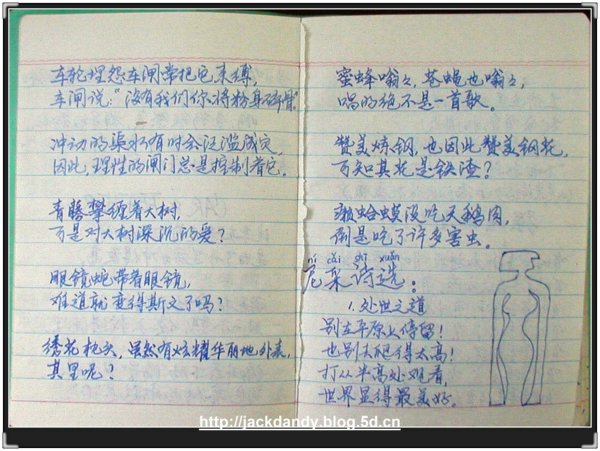 车轮埋怨车闸常把它束缚，
车闸说：“没有我们你将粉身碎骨”
冲动的渠水有时会泛滥成灾
因此，理性的闸门总是控制着它。
青藤攀缠着大树，
可是对大树深沉的爱？
眼镜蛇带着眼镜，
难道就变得斯文了吗？
绣花枕头，虽然有炫耀华丽地外表，
其里呢？
蜜蜂嗡々，苍蝇也嗡々，
唱的绝不是一首歌。
赞美炼钢，也因此赞美钢花，
可知其花是铁渣？
癞蛤蟆没吃天鹅肉，
倒是吃了许多害虫。
ní cǎi shī xuǎn
尼采诗选：
1. 处世之道
别在平原上停留！
也别去爬得太高！
打从半高处观看，
世界显得最美好。
http://jackdandy.blog.5d.cn